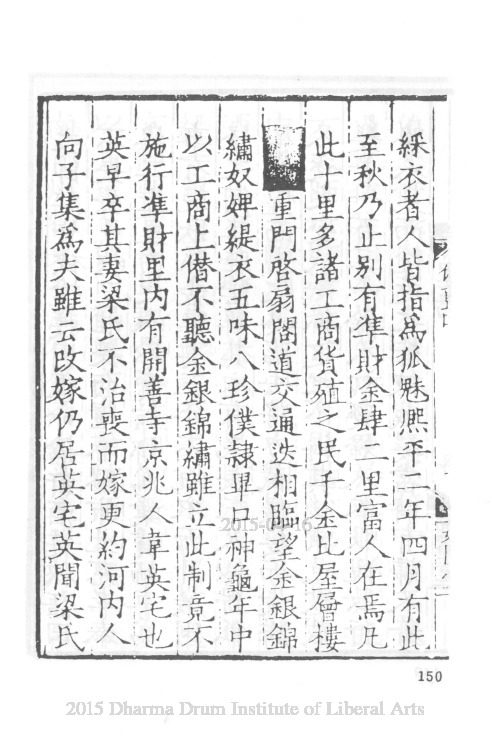 綵衣者人皆指爲狐魅熈平二年四月有此
至秋乃止别有凖財金肆二里富人在焉凡
此十里多諸工商貨殖之民千金比屋層樓
重門啓扇閣道交通迭相臨望金銀錦
繡奴婢緹衣五味八珍僕隸畢口神龜年中
以工商上僭不聽金銀錦繡雖立此制竟不
施行凖財里内有開善寺京兆人韋英宅也
英早卒其妻梁氏不治喪而嫁更約河内人
向子集爲夫雖云改嫁仍居英宅英聞梁氏
150
2015 Dharma Drum Institute of Liberal Arts